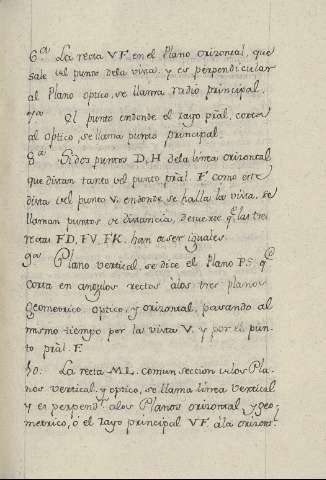 6.ª La recta V F. en el Plano orizontal, que
sale del punto dela vista, y es perpendicular
al Plano optico, se llama radio principal.
7.ª El punto endonde el rayo pral, corta
al optico, se llama punto principal.
8.ª Si dos puntos D, H dela linea orizontal
que distan tanto del punto pral. F. como este
dista del punto V. endonde se halla la vista, se
llaman puntos de distancia, desuerte q.e las tres
rectas FD, FV, FK. han de ser iguales.
9.ª Plano vertical, se dice el Plano P.S. q.e
corta en angulos rectos alos tres planos
geometrico optico, y orizontal, pasando al
mismo tiempo por la vista V. y por el pun-
to pral. F.
10. La recta M.L. comun seccion delos Pla-
nos vertical, y optico, se llama linea vertical
y es perpend.r alos Planos orizontal y geo-
metrico, ó el rayo principal VF. ála orizont.